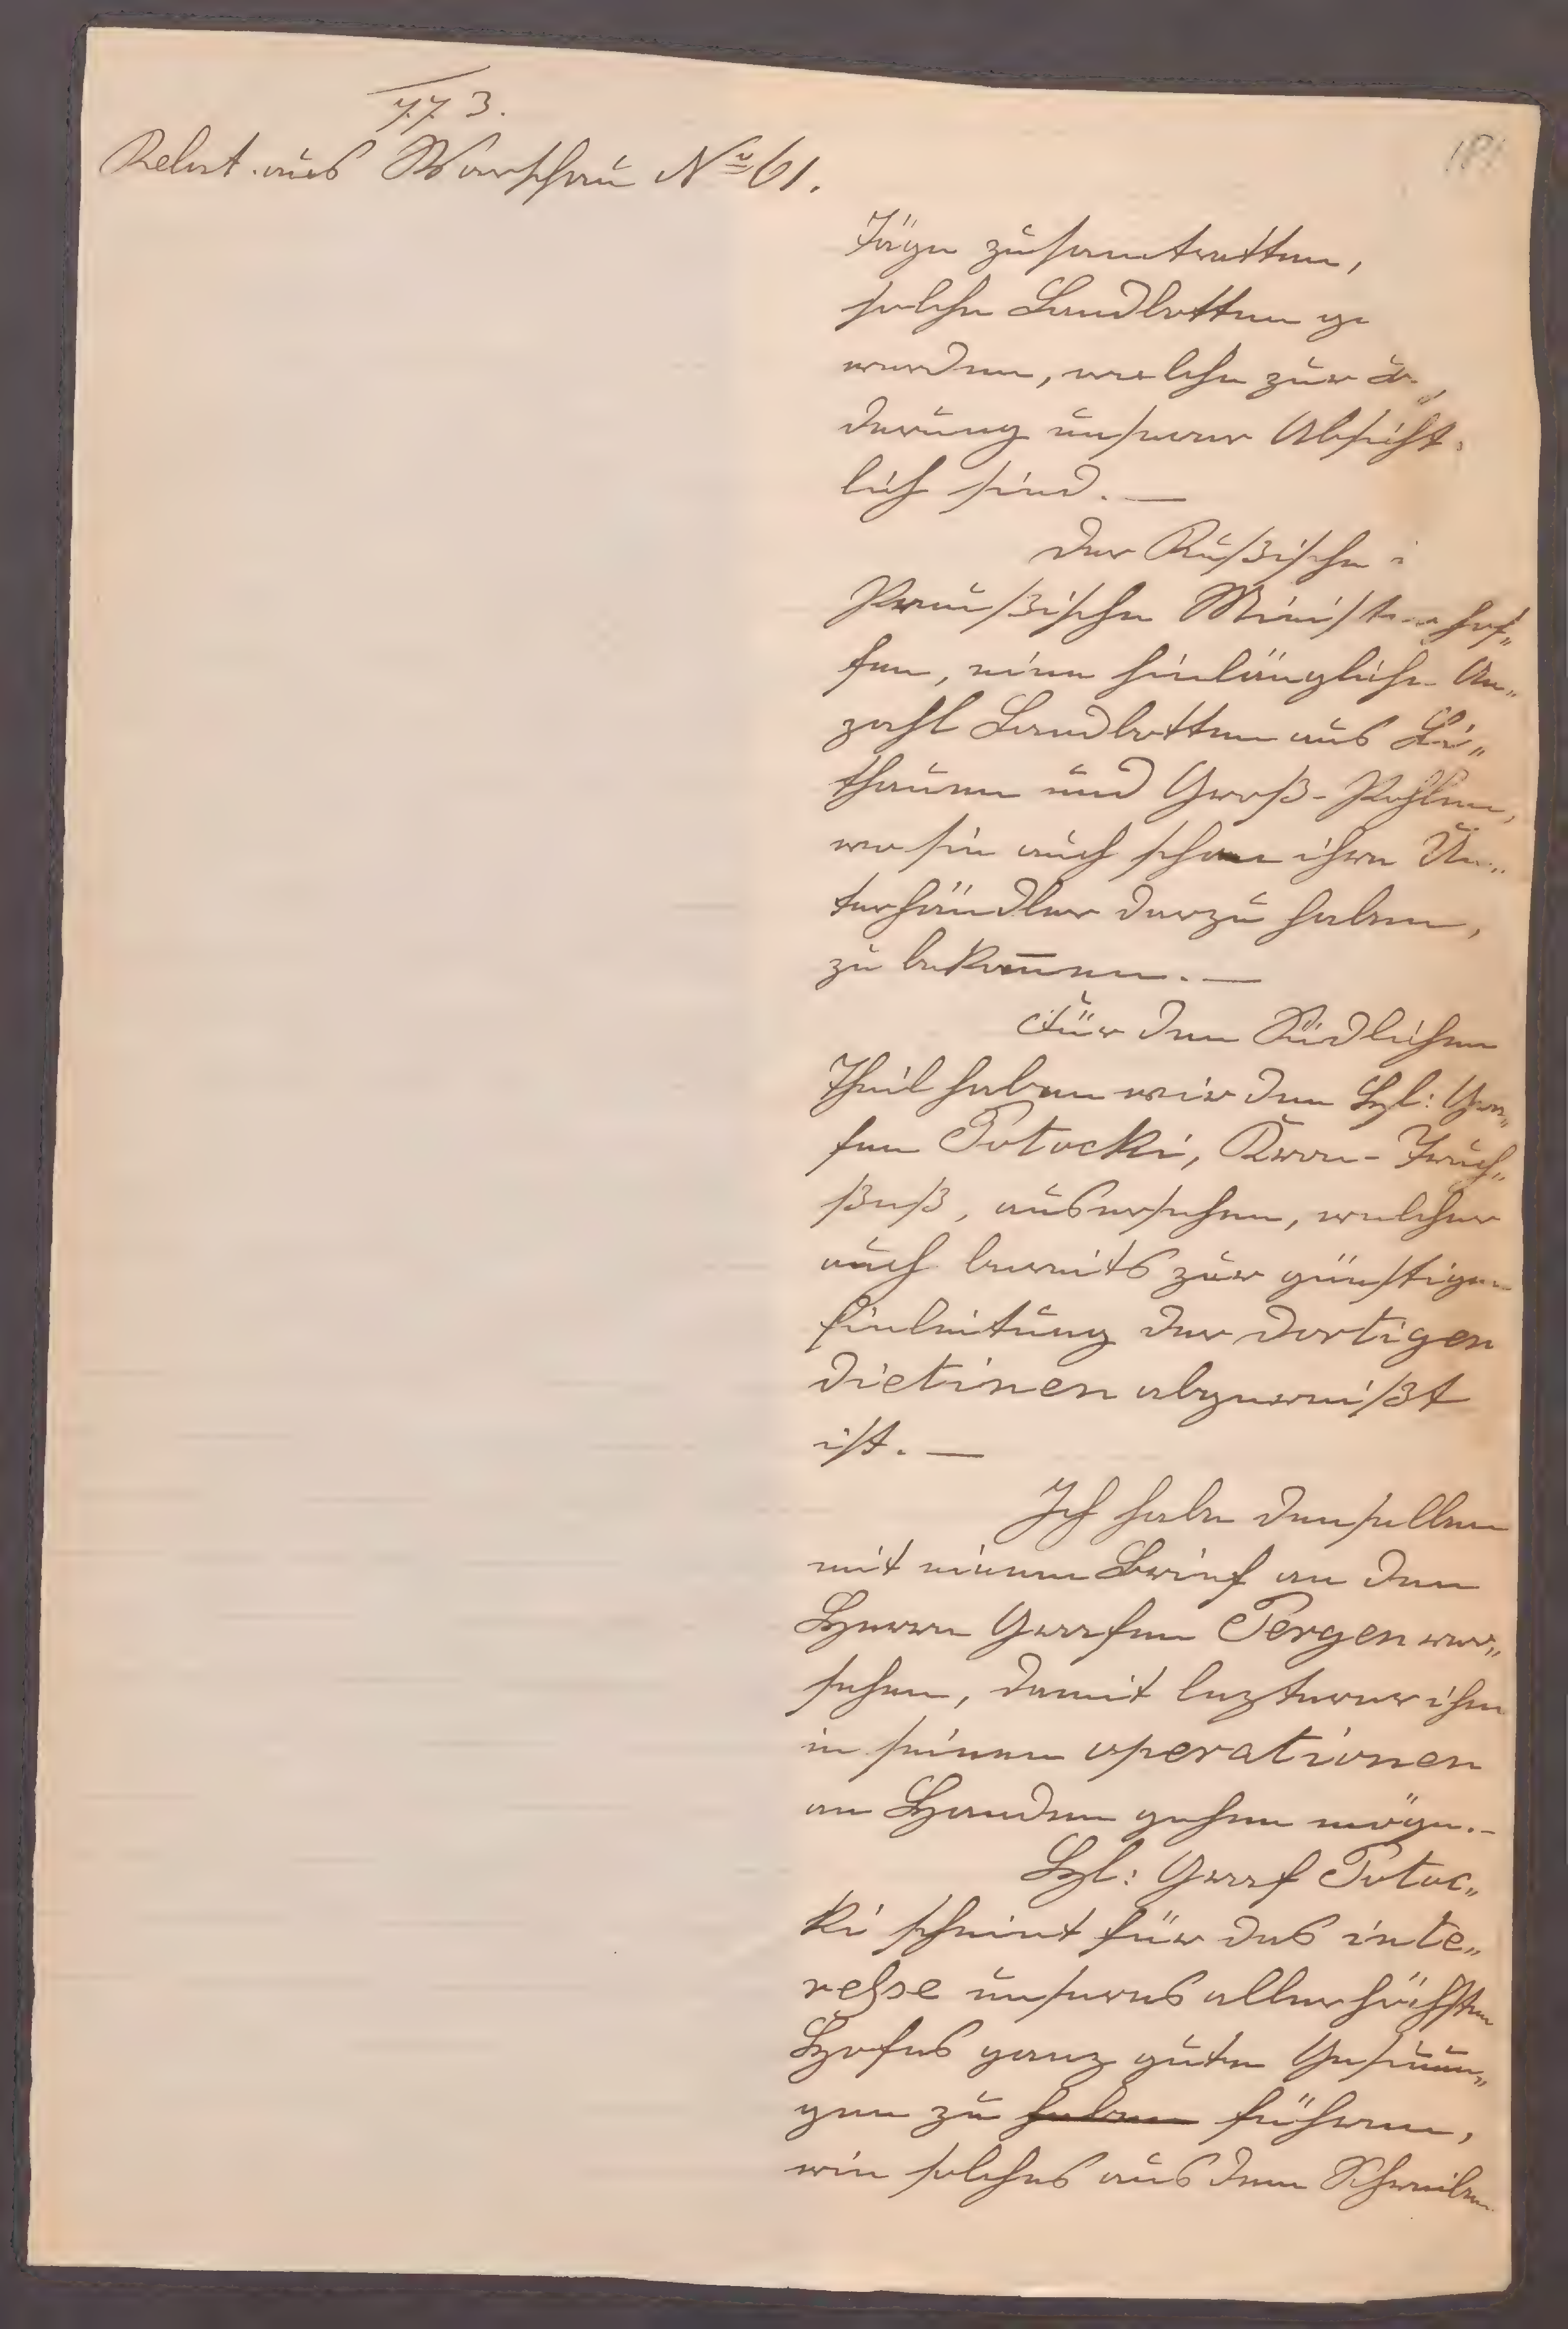 773.
Relat. aus Warschau No 61.
181
Täge zusamtretten,
solche Landbotten ge
werden, welche zur
derung unserer Absicht
lich sind. —
Der Rußische
Preußische Minister hof„
fen, eine hinlängliche An„
zahl Landbotten aus Li„
thauen und Groß-Pohlen,
wo sie auch schon ihre Un„
terhändler darzu haben,
zu bekom̄en. —
Für den Südlichen
Theil haben wir den H: Gra„
fen Potocki, Kron-Truch„
ßeß, ausersehen, welcher
auch bereits zur günstigen
Einleitung der dortigen
Dietinen abgereißt
ist. —
Ich habe denselben
mit einem Brief an den
Herrn Grafen Pergen ver„
sehen, damit lezterer ihm
in seinen operationen
an Handen gehen möge. —
H: Graf Potoc„
ki scheint für das inte„
resse unseres allerhöchsten
Hofes ganz gute Gesinnun„
gen zu haben führen,
wie solches aus dem Schreiben